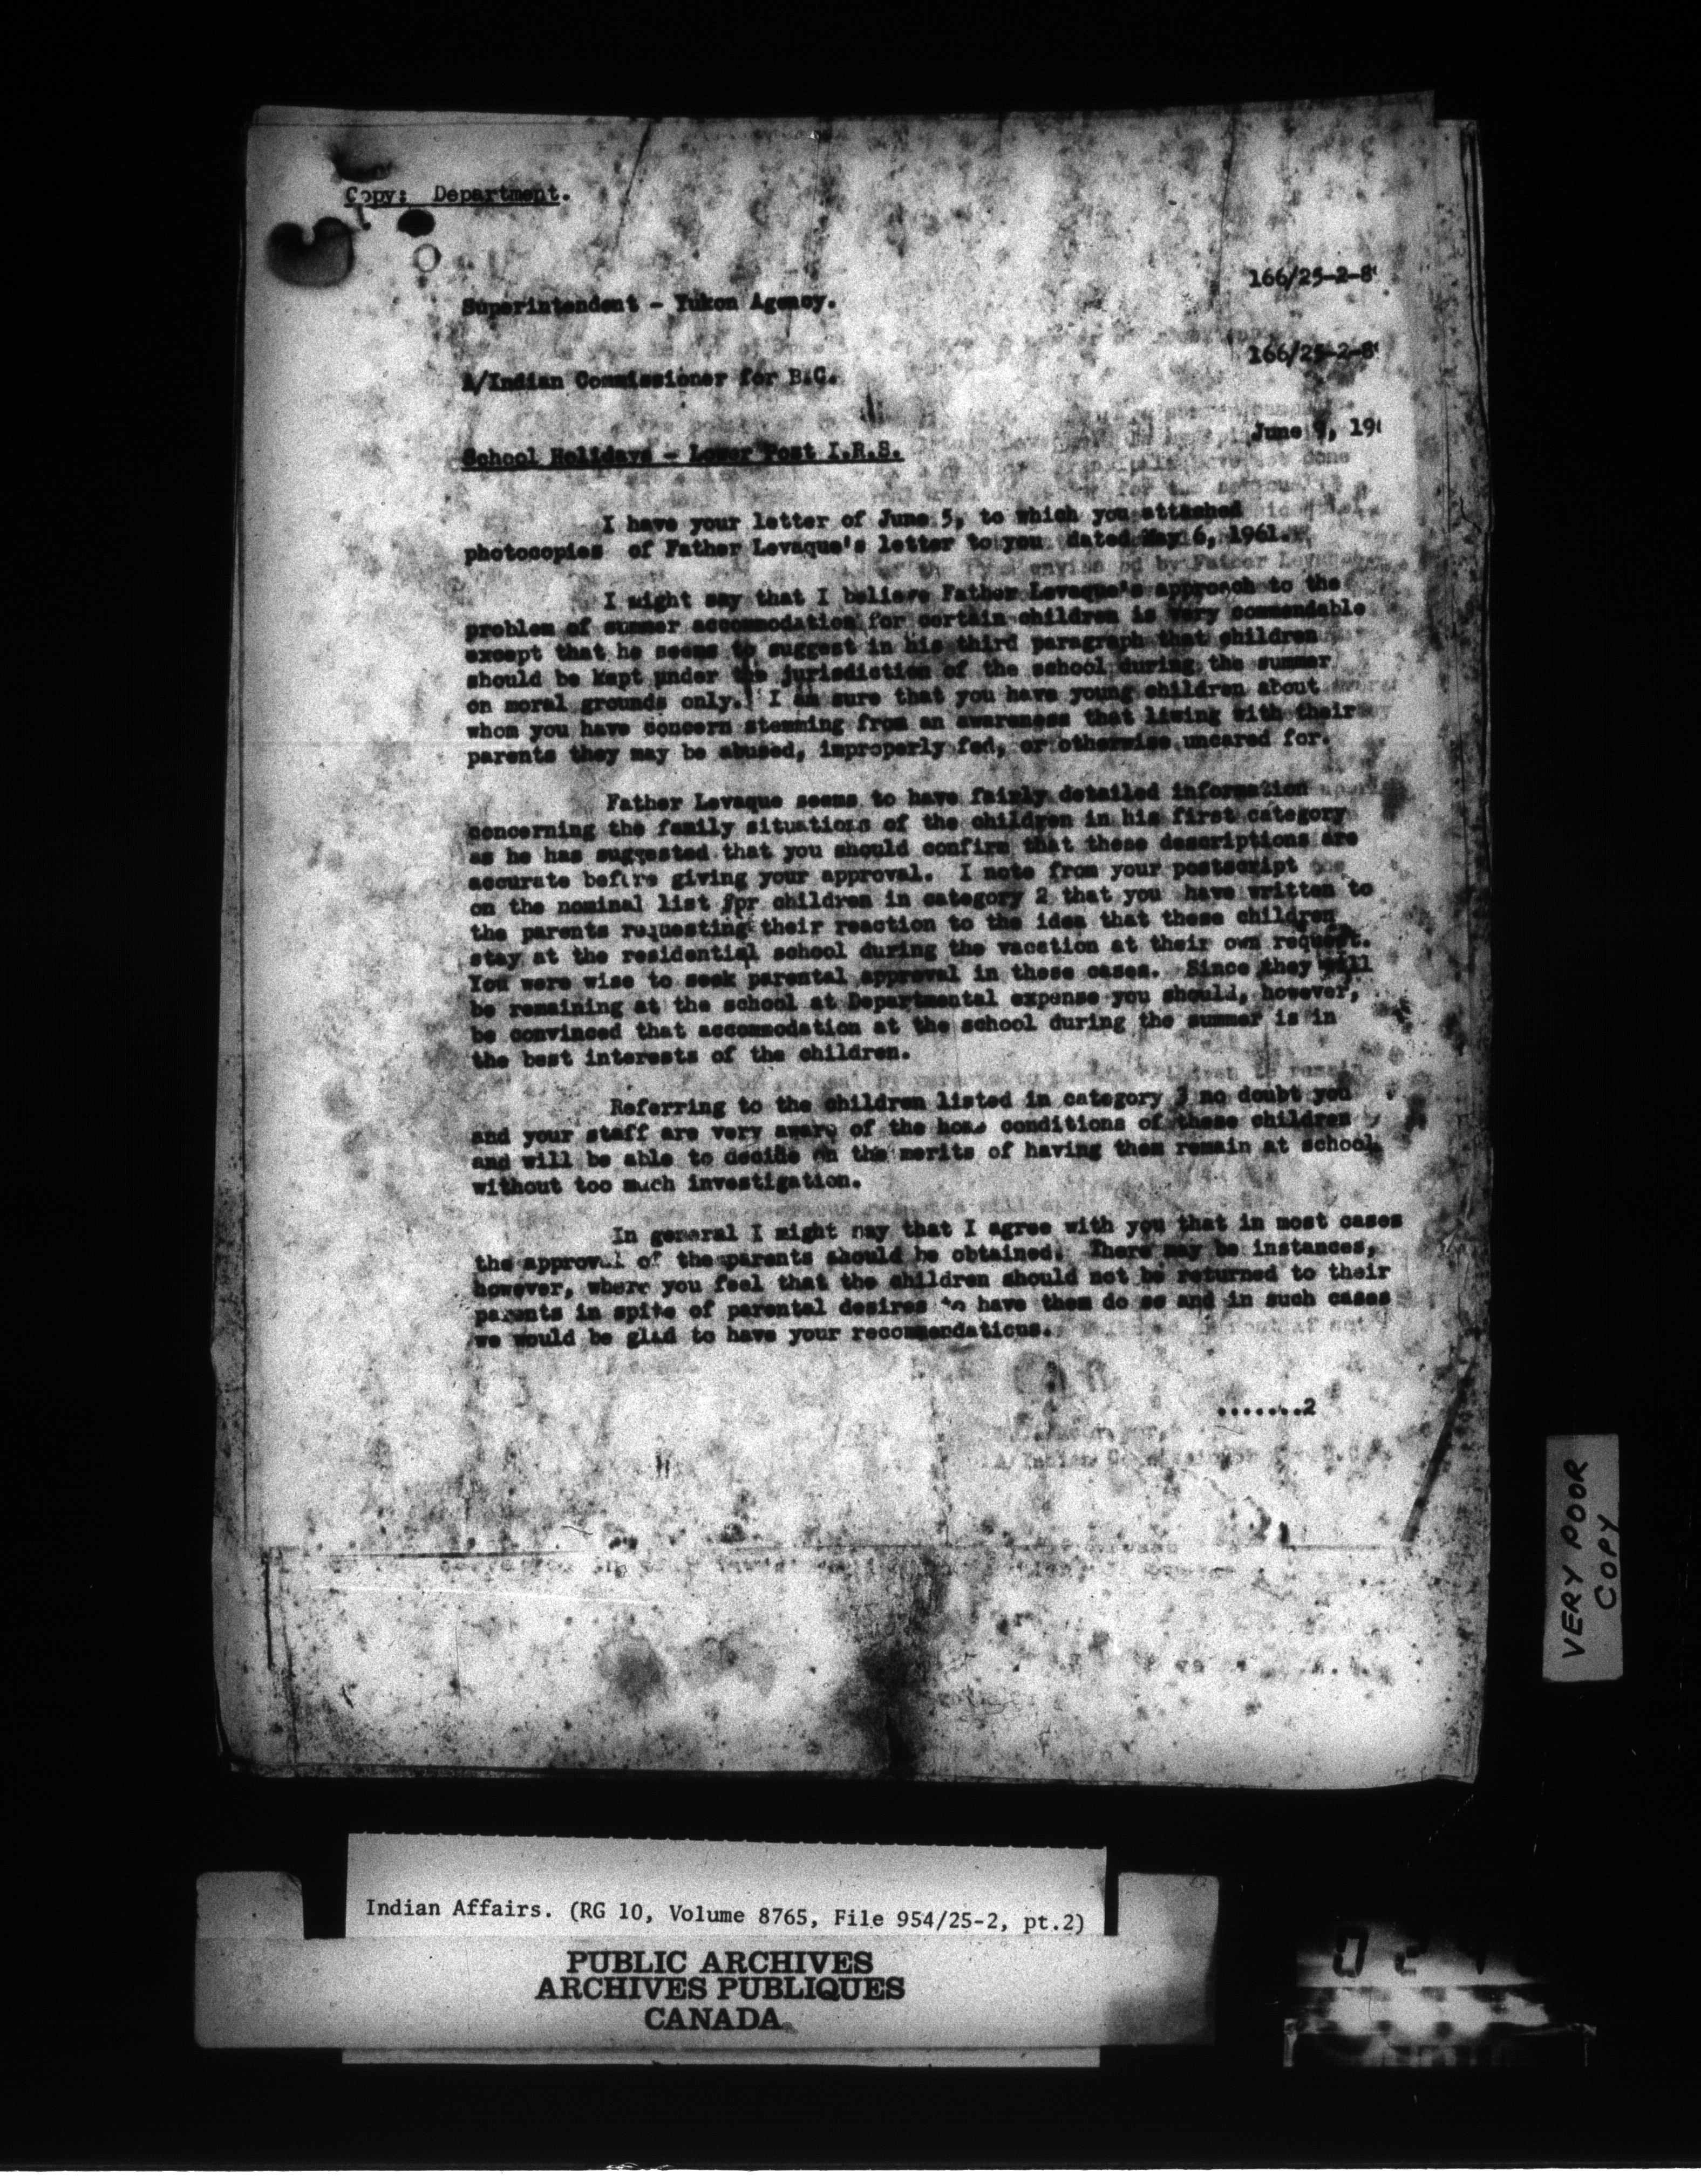 Copy: Department.
166/25-2-8
Superintendent - Yukon Agency.
166/25-2-8
A/Indian Commissioner for B.C.
June 9, 19
School Holidays - Lower Post I.R.S.
I have your letter of June 5, to which you attached
photocopies of Father Levaque's letter to you dated May 6, 1961.
I might say that I believe Father Levaque's approach to the
problem of summer accommodation for certain children is very commendable
except that he seems to suggest in his third paragraph that children
should be kept under the jurisdiction of the school during the summer
on moral grounds only. I am sure that you have young children about
whom you have concern stemming from an awareness that living with their
parents they may be abused, improperly fed, or otherwise uncared for.
Father Levaque seems to have fairly detailed information
concerning the family situations of the children in his first category
as he has suggested that you should confirm that these descriptions are
accurate before giving your approval. I note from your postscript
on the nominal list for children in category 2 that you have written to
the parents requesting their reaction to the idea that these children
stay at the residential school during the vacation at their own request.
You were wise to seek parental approval in these cases. Since they will
be remaining at the school at Departmental expense you should, however,
be convinced that accommodation at the school during the summer is in
the best interests of the children.
Referring to the children listed in category 3 no doubt you
and your staff are very aware of the home conditions of these children
and will be able to decide on the merits of having them remain at school
without too much investigation.
In general I might say that I agree with you that in most cases
the approval of the parents should be obtained. There may be instances,
however, where you feel that the children should not be returned to their
parents in spite of parental desires to have them do so and in such cases
we would be glad to have your recommendations.
.......2
VERY POOR
COPY
Indian Affairs. (RG 10, Volume 8765, File 954/25-2, pt.2)
PUBLIC ARCHIVES
ARCHIVES PUBLIQUES
CANADA